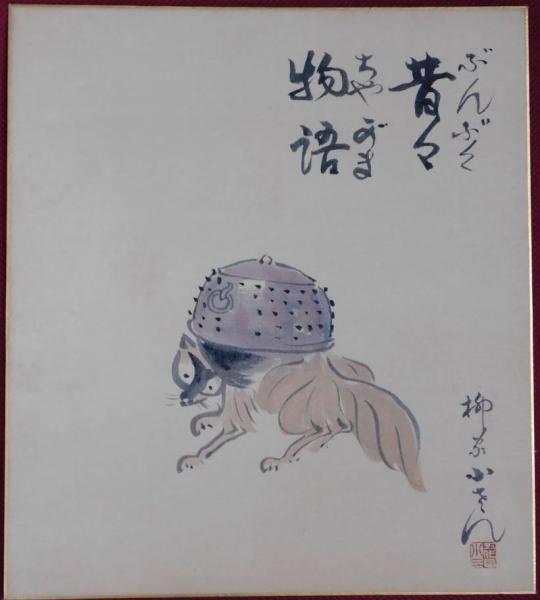 ぶんぶく
昔々
ちやがま
物語
柳家小さん